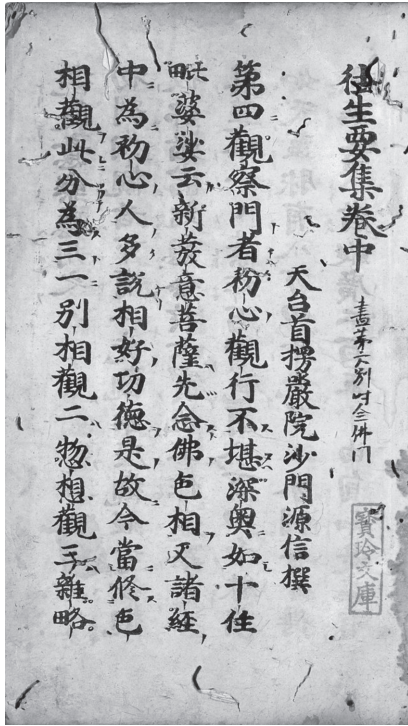 往生要集巻中 盡第六別時念佛門
天台首楞嚴院沙門源信撰
第四觀察門者初心觀行不堪深奥如十住
毗婆娑云新發意菩薩先念佛色相又諸經
中為初心人多説相好功徳是故今當修色
相觀此分為三一別相觀二惣相觀三雜略
寶玲文庫